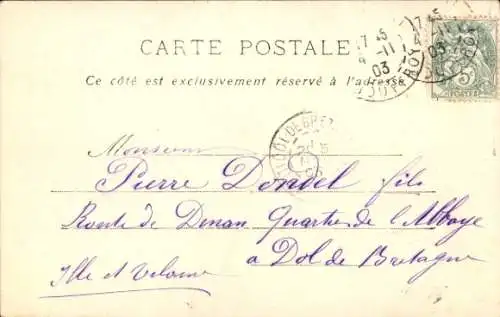 CARTE POSTALE
Ce côté est exclusivement réservé à l'adresse
17 45
11
03
17 45
11
03
DOL-DE-BRET
Monsieur
Pierre Dondel fils
Route de Dinan Quartier de l'Abbaye
à Dol de Bretagne
Ille et Vilaine